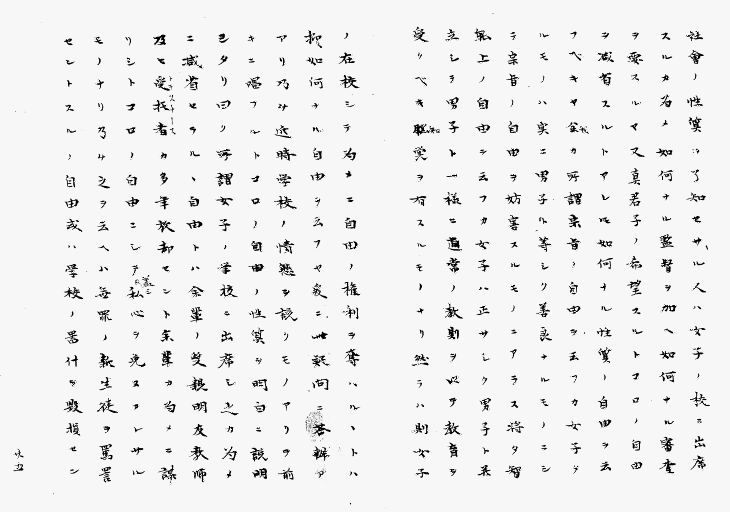 社會ノ性質ヲ了知セサル人ハ女子ノ校ニ出席
スルカ為メ如何ナル監督ヲ加ヘ如何ナル審査
ヲ要スルヤ又真君子ノ希望スルトコロノ自由
ヲ減省スルトアレ𪜈如何ナル性質ノ自由ヲ云
フヘキヤ余カ所謂宗旨ノ自由ヲ云フカ女子ヲ
ルモノハ実ニ男子ト等シク善良ナルモノニシ
テ宗旨ノ自由ヲ妨害スルモノニアラス将タ智
氣上ノ自由ヲ云フカ女子ハ正サシク男子ト共
立シテ男子ト一様ニ通常ノ教則ヲ以テ教育ヲ
受クベキ職業ヲ有スルモノナリ然ラハ則女子
ノ在校シテ為メニ自由ノ権利ヲ奪ハルヽトハ
抑如何ナル自由ヲ云フヤ爰ニ此疑問ニ答辯ア
アリ乃ミ近時学校ノ情態ヲ談クモノアリテ前
キニ唱フルトコロノ自由ノ性質ヲ明白ニ説明
シタリ曰ク所謂女子ノ学校ニ出席シ之カ為メ
ニ減省セラルヽ自由トハ余輩ノ父親朋友教師
及ヒ受托者カ多年教却セント余輩カ為メニ謀
リシトコロノ自由ニシテ私心ヲ免スカレサル
モノナリ乃ミ之ヲ云ヘハ毎罪ノ新生徒ヲ罵詈
セントスルノ自由或ハ学校ノ器什ヲ毀損セン